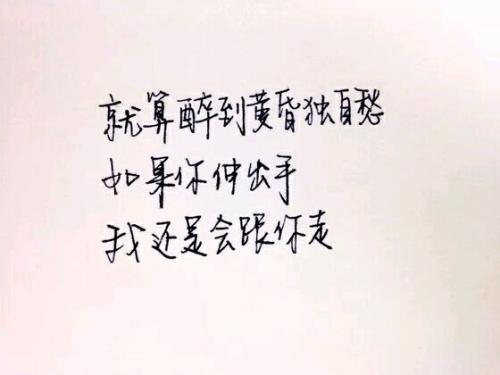 就算醉到黄昏独自愁
如果你伸出手
我还是会跟你走